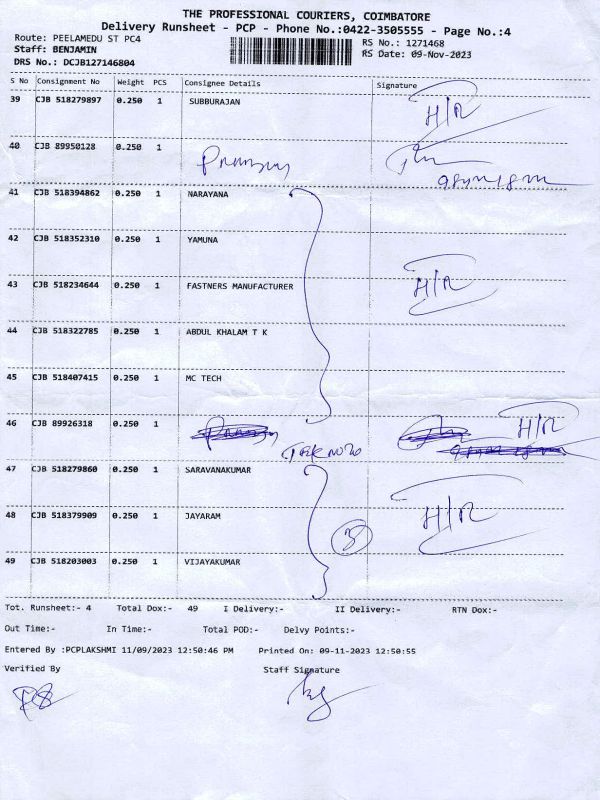 THE PROFESSIONAL COURIERS, COIMBATORE
Delivery Runsheet - PCP - Phone No.:0422-3505555 - Page No.:4
Route: PEELAMEDU ST PC4
RS No.: 1271468
Staff: BENJAMIN
RS Date: 09-Nov-2023
DRS No.: DCJB127146804
S No Consignment No Weight PCS Consignee Details Signature
39 CJB 518279897 0.250 1 SUBBURAJAN H/R
40 CJB 89950128 0.250 1
41 CJB 518394862 0.250 1 NARAYANA
42 CJB 518352310 0.250 1 YAMUNA
43 CJB 518234644 0.250 1 FASTNERS MANUFACTURER H/R
44 CJB 518322785 0.250 1 ABDUL KHALAM T K
45 CJB 518407415 0.250 1 MC TECH
46 CJB 89926318 0.250 1 H/R
47 CJB 518279860 0.250 1 SARAVANAKUMAR
48 CJB 518379909 0.250 1 JAYARAM 3 H/R
49 CJB 518203003 0.250 1 VIJAYAKUMAR
Tot. Runsheet:- 4 Total Dox:- 49 I Delivery:- II Delivery:- RTN Dox:-
Out Time:- In Time:- Total POD:- Delvy Points:-
Entered By :PCPLAKSHMI 11/09/2023 12:50:46 PM Printed On: 09-11-2023 12:50:55
Verified By Staff Signature